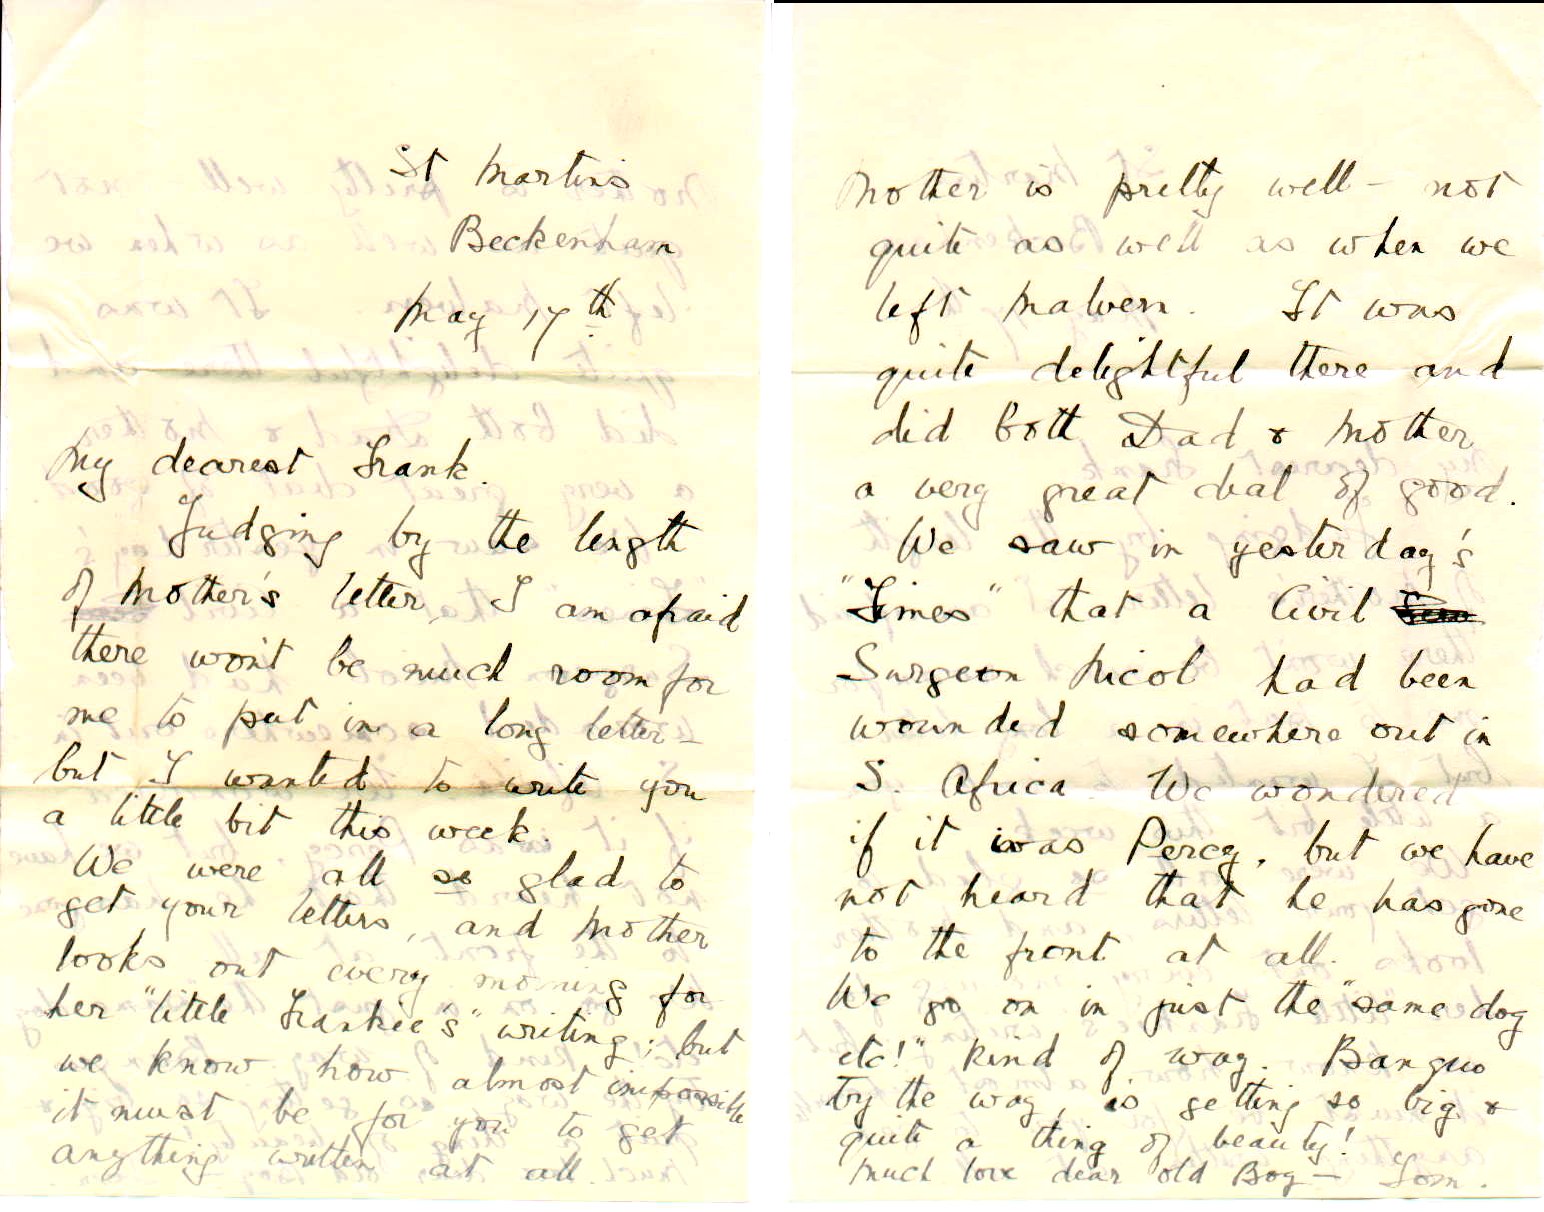 St Martins
Beckenham
May 17th
My dearest Frank.
Judging by the length
of Mother's letter, I am afraid
there won't be much room for
me to put in a long letter -
but I wanted to write you
a little bit this week.
We were all so glad to
get your letters, and Mother
looks out every morning for
her "little Frankie's" writing; but
we know how almost impossible
it must be for you to get
anything written at all.
Mother is pretty well - not
quite as well as when we
left Malvern. It was
quite delightful there and
did both Dad & Mother
a very great deal of good.
We saw in yesterday's
"Times" that a Civil
Surgeon Nicol had been
wounded somewhere out in
S. Africa. We wondered
if it was Percy, but we have
not heard that he has gone
to the front at all.
We go on in just the "same dog
etc!" kind of way. Banquo
by the way, is getting so big &
quite a thing of beauty!
Much love dear old Boy - Tom.